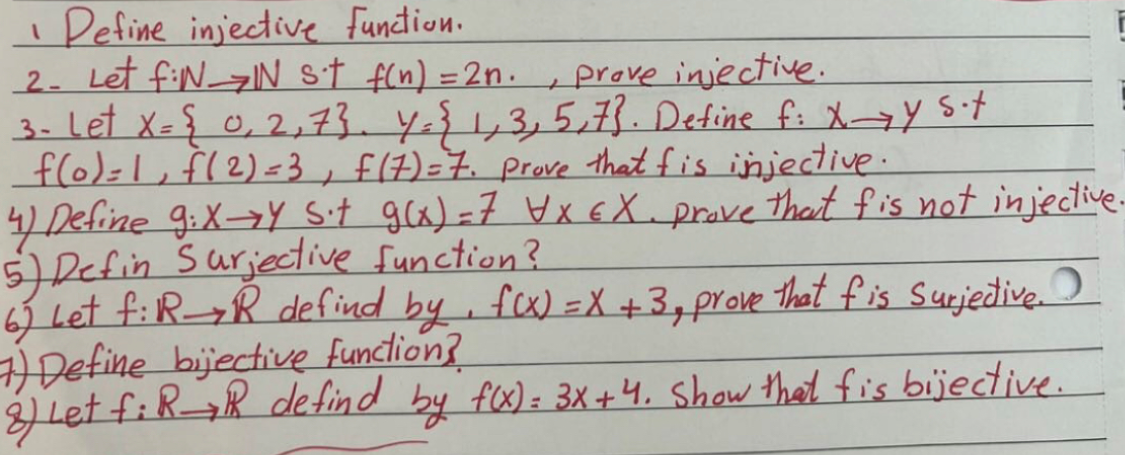 1 Define injective function.
2- Let f:ℕ→ℕ s.t f(n) = 2n. , prove injective.
3- Let X={ 0, 2, 7}. Y={ 1, 3, 5, 7}. Define f: X→Y s.t
f(0)=1, f(2)=3, f(7)=7. prove that f is injective.
4) Define g:X→Y s.t g(x)=7 ∀x∈X. prove that f is not injective.
5) Defin Surjective function?
6) Let f:ℝ→ℝ defind by, f(x) = x + 3, prove that f is Surjective.
7) Define bijective function?
8) Let f:ℝ→ℝ defind by f(x) = 3x + 4. Show that f is bijective.